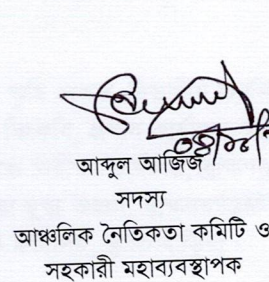 আব্দুল আজিজ
সদস্য
আঞ্চলিক নৈতিকতা কমিটি ও
সহকারী মহাব্যবস্থাপক